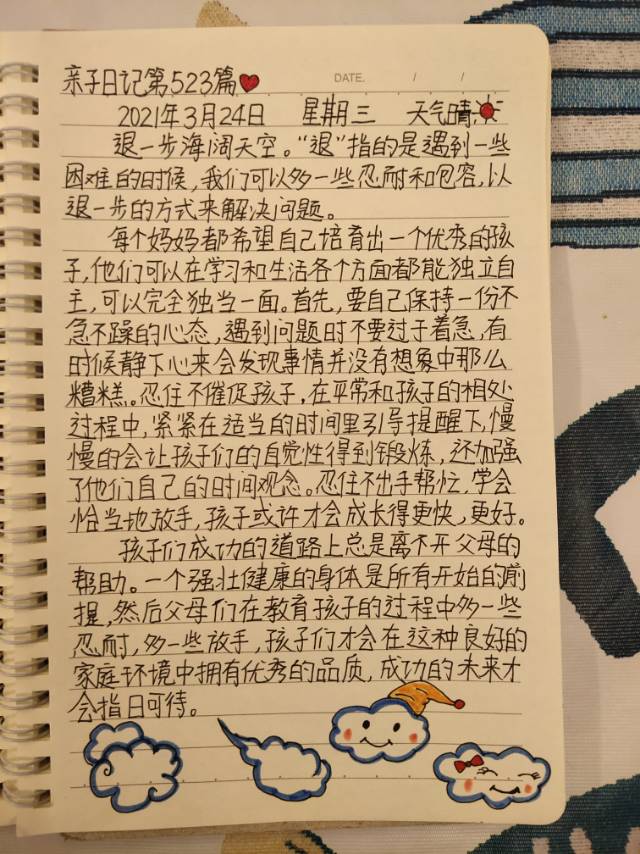 DATE. / /
亲子日记第523篇
2021年3月24日 星期三 天气晴
退一步海阔天空。“退”指的是遇到一些
困难的时候,我们可以多一些忍耐和包容,以
退一步的方式来解决问题。
每个妈妈都希望自己培育出一个优秀的孩
子,他们可以在学习和生活各个方面都能独立自
主,可以完全独当一面。首先,要自己保持一份不
急不躁的心态,遇到问题时不要过于着急,有
时候静下心来会发现事情并没有想象中那么
糟糕。忍住不催促孩子,在平常和孩子的相处
过程中,紧紧在适当的时间里引导提醒下,慢
慢的会让孩子们的自觉性得到锻炼,还加强
了他们自己的时间观念。忍住不出手帮忙,学会
恰当地放手,孩子或许才会成长得更快,更好。
孩子们成功的道路上总是离不开父母的
帮助。一个强壮健康的身体是所有开始的前
提,然后父母们在教育孩子的过程中多一些
忍耐,多一些放手,孩子们才会在这种良好的
家庭环境中拥有优秀的品质,成功的未来才
会指日可待。